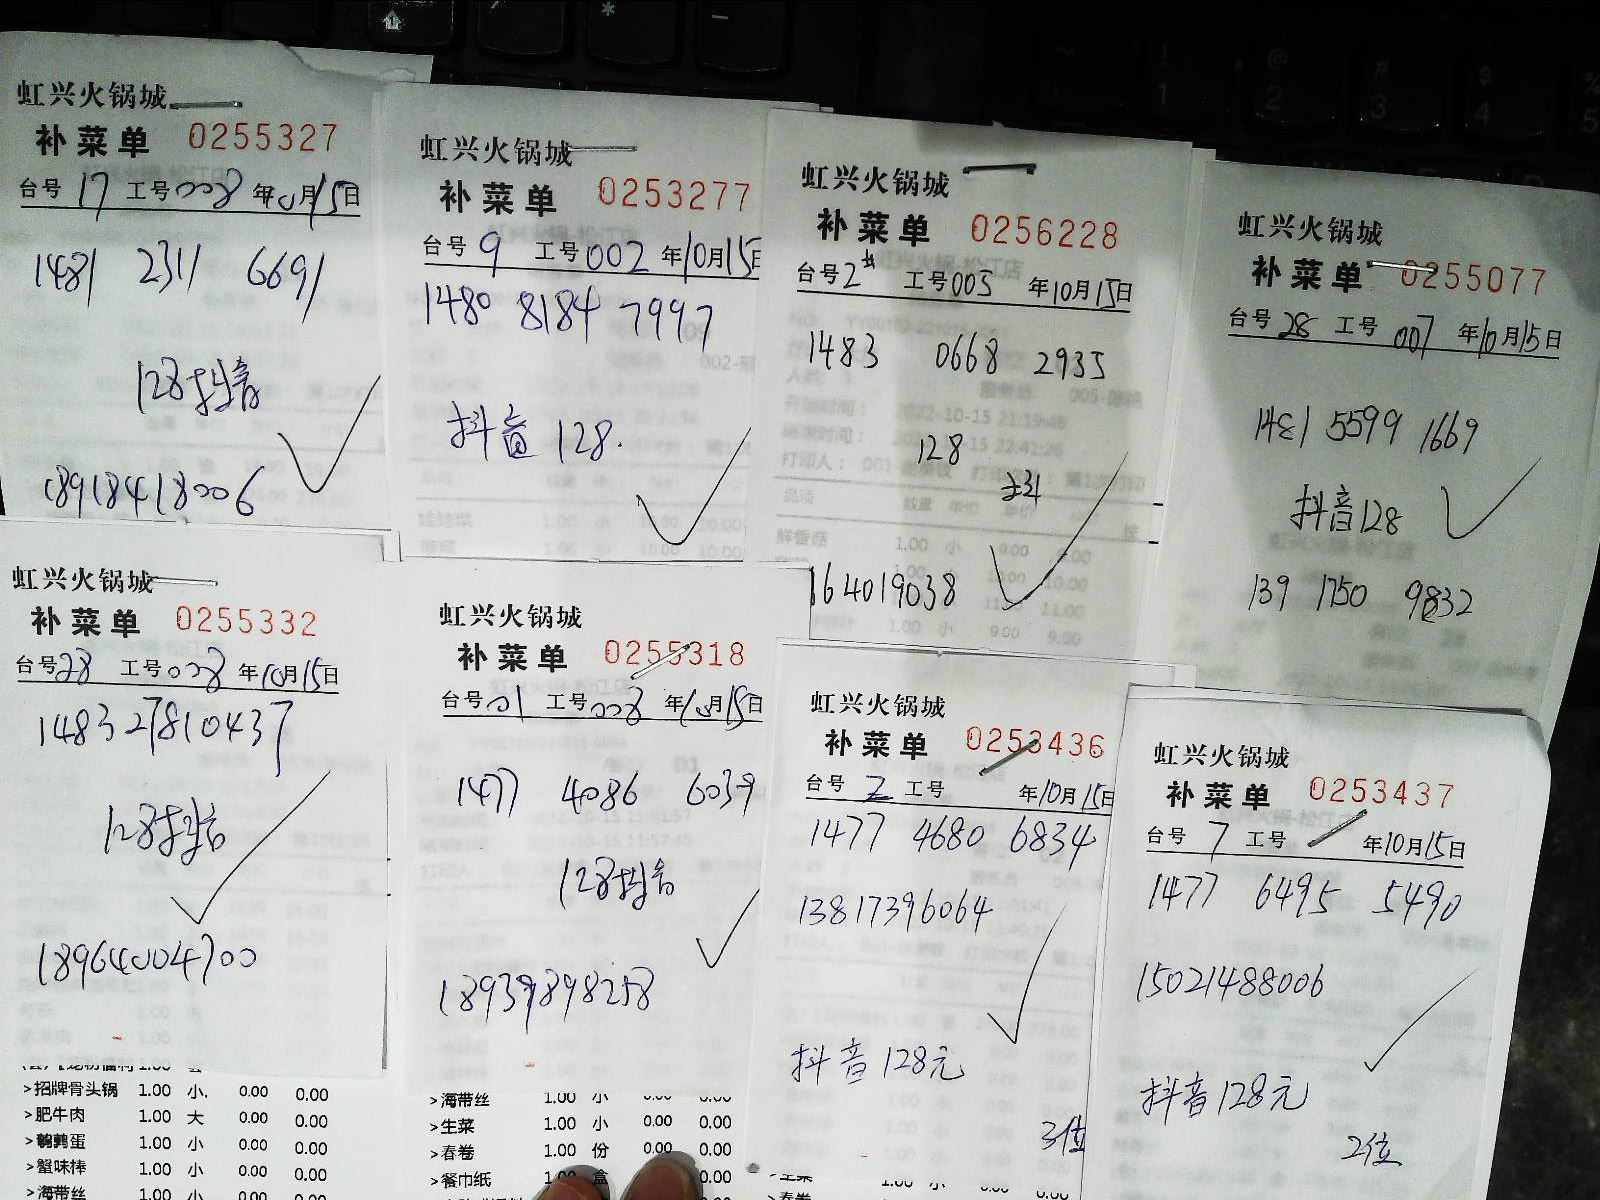 虹兴火锅城
补菜单 0255327
台号 17 工号 008 年10月15日
1481 2311 6691
128抖音
18918418006
虹兴火锅城
补菜单 0253277
台号 9 工号 002 年10月15日
1480 8184 7997
抖音128.
虹兴火锅城
补菜单 0256228
台号 2# 工号 005 年10月15日
1483 0668 2935
128
抖
164019038
虹兴火锅城
补菜单 0255077
台号 28 工号 007 年10月15日
1481 5599 1669
抖音128
139 1750 9832
虹兴火锅城
补菜单 0255332
台号 28 工号 008 年10月15日
1483 2781 0437
128抖音
18964004700
>招牌骨头锅 1.00 小 0.00 0.00
>肥牛肉 1.00 大 0.00 0.00
>鹌鹑蛋 1.00 小 0.00 0.00
>蟹味棒 1.00 小 0.00 0.00
>海带丝 1.00 小 0.00 0.00
虹兴火锅城
补菜单 0255318
台号 01 工号 008 年10月15日
1477 4086 6039
128抖音
18939898258
>海带丝 1.00 小 0.00 0.00
>生菜 1.00 小 0.00 0.00
>春卷 1.00 份 0.00 0.00
>餐巾纸 1.00 盒 0.00
虹兴火锅城
补菜单 0253436
台号 2 工号 年10月15日
1477 4680 6834
13817396064
抖音128元
3位
虹兴火锅城
补菜单 0253437
台号 7 工号 年10月15日
1477 6495 5490
15021488006
抖音128元
2位